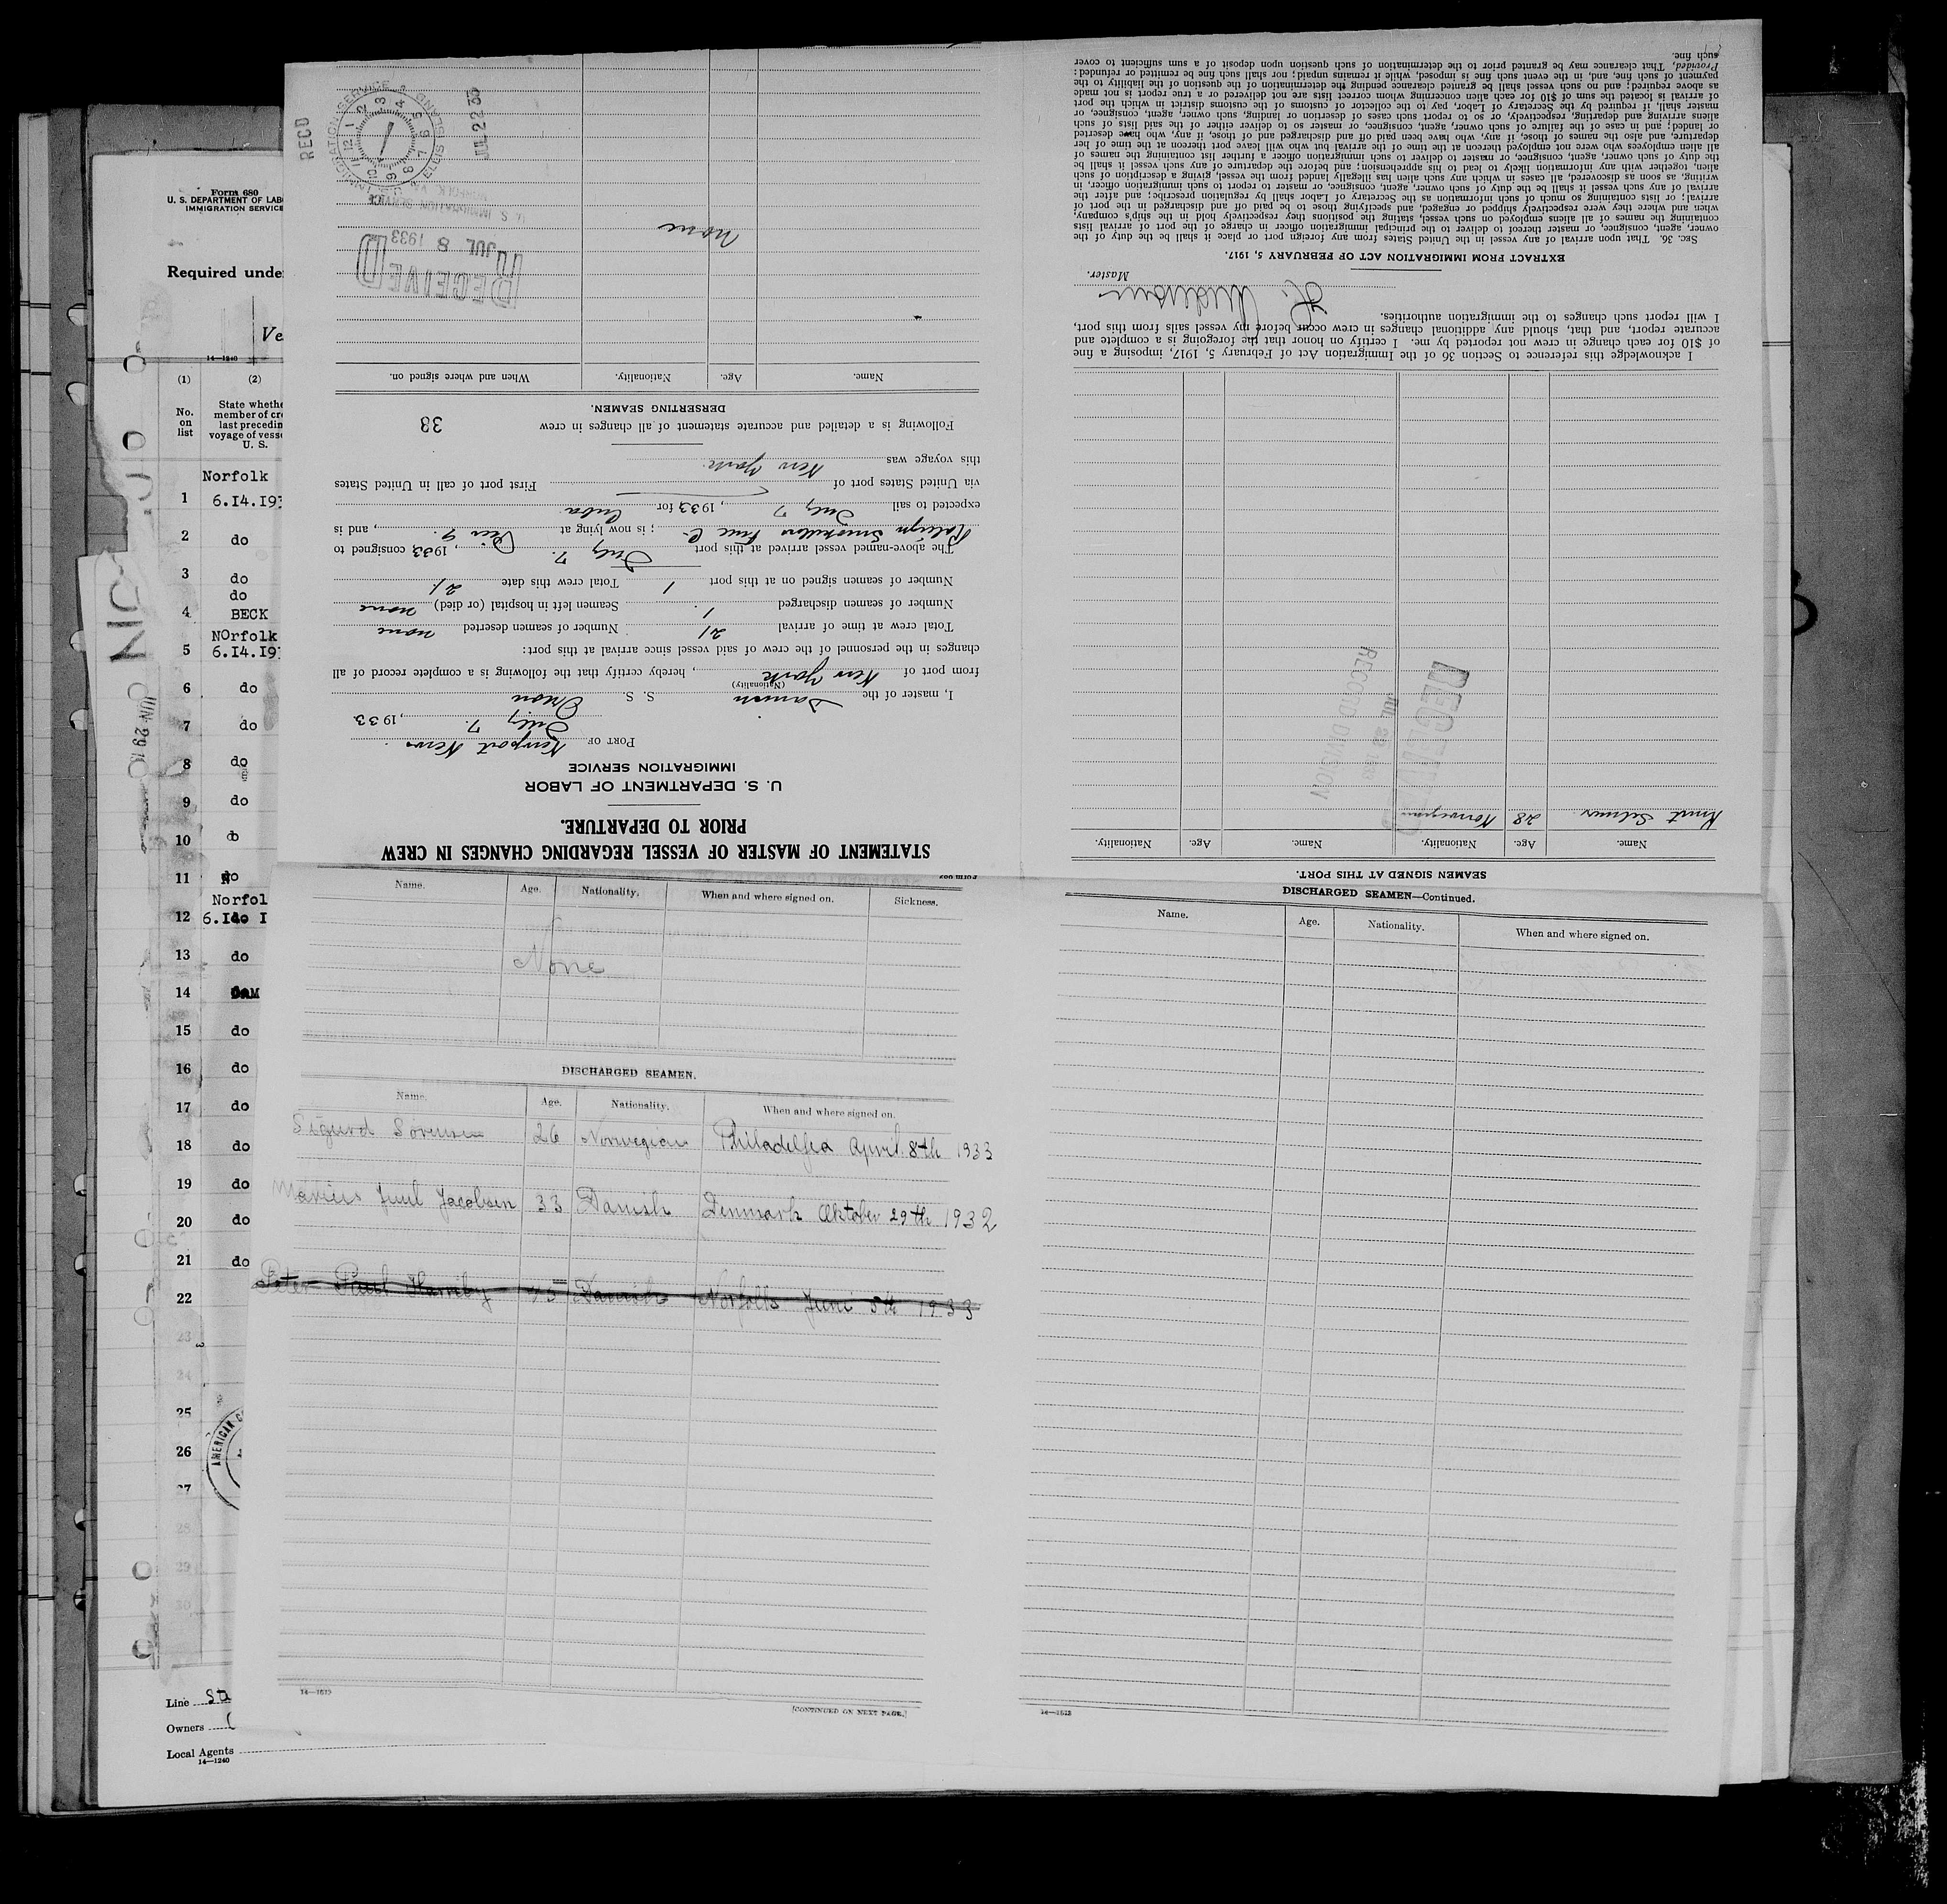 Form 680
U. S. DEPARTMENT OF LAB
IMMIGRATION SERVICE
Required unde
Ve
14—1240
(1) (2)
No. on list
State whethe
member of cr
last precedin
voyage of vesse
U. S.
Norfolk
1 6.14.193
2 do
3 do
do
4 BECK
NOrfolk
5 6.14.19
6 do
7 do
8 do
9 do
10 do
11 do
Norfol
12 6.14
13 do
14
15 do
16 do
17 do
18 do
19 do
20 do
21 do
22
23
24
25
26
27
28
29
30
JUN 29
AMERICAN
Line
Owners
Local Agents
14—1240
STATEMENT OF MASTER OF VESSEL REGARDING CHANGES IN CREW
PRIOR TO DEPARTURE.
U. S. DEPARTMENT OF LABOR
IMMIGRATION SERVICE
PORT OF Newport News
July 7, 1933
I, master of the Danish S. S. Orion
(Nationality)
from port of New York, hereby certify that the following is a complete record of all
changes in the personnel of the crew of said vessel since arrival at this port:
Total crew at time of arrival 21 Number of seamen deserted none
Number of seamen discharged 1 Seamen left in hospital (or died) none
Number of seamen signed on at this port 1 Total crew this date 21
The above-named vessel arrived at this port July 7, 1933, consigned to
; is now lying at Pier 9, and is
expected to sail July 7, 1933 for Cuba
via United States port of First port of call in United States
this voyage was New York
Following is a detailed and accurate statement of all changes in crew
38
DERSERTING SEAMEN.
Name. Age. Nationality. When and where signed on.
none
RECEIVED
JUL 8 1933
U. S. IMMIGRATION SERVICE
NORFOLK, VA.
RECD
JUL 22 33
U. S. IMMIGRATION SERVICE
ELLIS ISLAND
SEAMEN SIGNED AT THIS PORT.
Name. Age. Nationality. Name. Age. Nationality.
Knut Selmer 28 Norwegian
RECEIVED
RECORD DIVISION
I acknowledge this reference to Section 36 of the Immigration Act of February 5, 1917, imposing a fine
of $10 for each change in crew not reported by me. I certify on honor that the foregoing is a complete and
accurate report, and that, should any additional changes in crew occur before my vessel sails from this port,
I will report such changes to the immigration authorities.
Master.
EXTRACT FROM IMMIGRATION ACT OF FEBRUARY 5, 1917.
SEC. 36. That upon arrival of any vessel in the United States from any foreign port or place it shall be the duty of the
owner, agent, consignee, or master thereof to deliver to the principal immigration officer in charge of the port of arrival lists
containing the names of all aliens employed on such vessel, stating the positions they respectively hold in the ship's company,
when and where they were respectively shipped or engaged, and specifying those to be paid off and discharged in the port of
arrival; or lists containing so much of such information as the Secretary of Labor shall by regulation prescribe; and after the
arrival of any such vessel it shall be the duty of such owner, agent, consignee, or master to report to such immigration officer, in
writing, as soon as discovered, all cases in which any such alien has illegally landed from the vessel, giving a description of such
alien, together with any information likely to lead to his apprehension; and before the departure of any such vessel it shall be
the duty of such owner, agent, consignee, or master to deliver to such immigration officer a further list containing the names of
all alien employees who were not employed thereon at the time of the arrival but who will leave port thereon at the time of her
departure, and also the names of those, if any, who have been paid off and discharged, and of those, if any, who have deserted
or landed; and in case of the failure of such owner, agent, consignee, or master so to deliver either of the said lists of such
aliens arriving and departing, respectively, or so to report such cases of desertion or landing, such owner, agent, consignee, or
master shall, if required by the Secretary of Labor, pay to the collector of customs of the customs district in which the port
of arrival is located the sum of $10 for each alien concerning whom correct lists are not delivered or a true report is not made
as above required; and no such vessel shall be granted clearance pending the determination of the question of the liability to the
payment of such fine, and, in the event such fine is imposed, while it remains unpaid; nor shall such fine be remitted or refunded:
Provided, That clearance may be granted prior to the determination of such question upon deposit of a sum sufficient to cover
such fine.
Name. Age. Nationality. When and where signed on. Sickness.
None
DISCHARGED SEAMEN.
Name. Age. Nationality. When and where signed on.
Sigurd Sorensen 26 Norwegian Philadelfea April 8th 1933
Marius Juul Jacobsen 33 Danish Denmark Oktober 29th 1932
Peter Paul 45 Danish Norfolk Juni 5th 1933
14—1613
[CONTINUED ON NEXT PAGE.]
DISCHARGED SEAMEN—Continued.
Name. Age. Nationality. When and where signed on.
14—1613